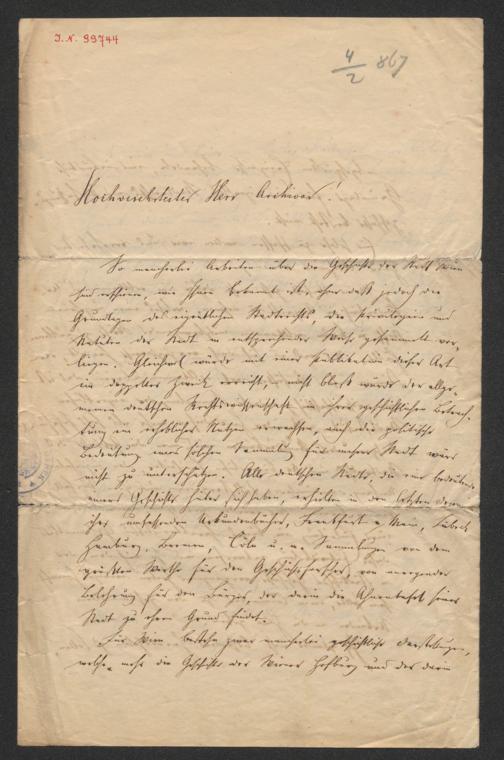 J. N. 99744
4/2 867
Hochverehrtester Herr Archivar!
So mancherlei Arbeiten über die Geschichte der Stadt Wien
sind erschienen, wie Ihnen bekannt ist, ohne daß jedoch die
Grundlagen des eigentlichen Stadtrechts, die Privilegien und
Statuten der Stadt in entsprechender Weise gesammelt vor-
liegen. Gleichwol würde mit einer Publikation dieser Art
ein doppelter Zweck erreicht; nicht bloß würde der allge-
meinen deutschen Rechtswissenschaft in ihrer geschichtlichen Betrach-
tung ein erheblicher Nutzen erwachsen, auch die politische
Bedeutung einer solchen Sammlung für unsere Stadt wäre
nicht zu unterschätzen. Alle deutschen Städte, die eine bedeuten-
dere Geschichte hinter sich haben, erhielten in den letzten Decen-
ihre umfassenden Urkundenbücher, Frankfurt a. Main, Lübeck
Hamburg, Bremen, Cöln u. a. Sammlungen von dem
größten Werthe für den Geschichtsforscher, von anregender
Belehrung für den Bürger, der darin die Ahnentafel seiner
Stadt zu ehren Grund findet.
Für Wien bestehen zwar mancherlei geschichtliche Darstellungen,
welche mehr die Geschichte der Wiener Hofburg und der darin